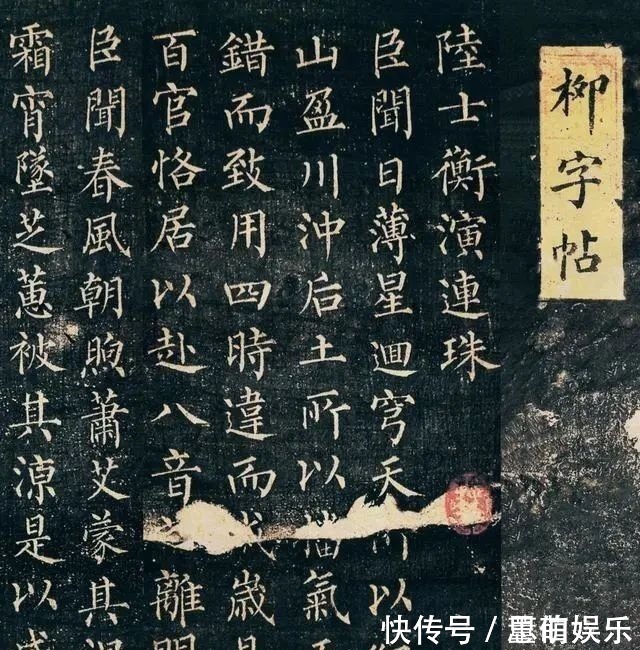 柳字帖
陸士衡演連珠
臣聞日薄星迴穹天所以
山盈川沖后土所以播氣五
錯而致用四時違而成歲是
百官恪居以赴八音之離
臣聞春風朝煦蕭艾蒙其溫
霜宵墜芝蕙被其涼是以威
快传号 / 萌娱乐